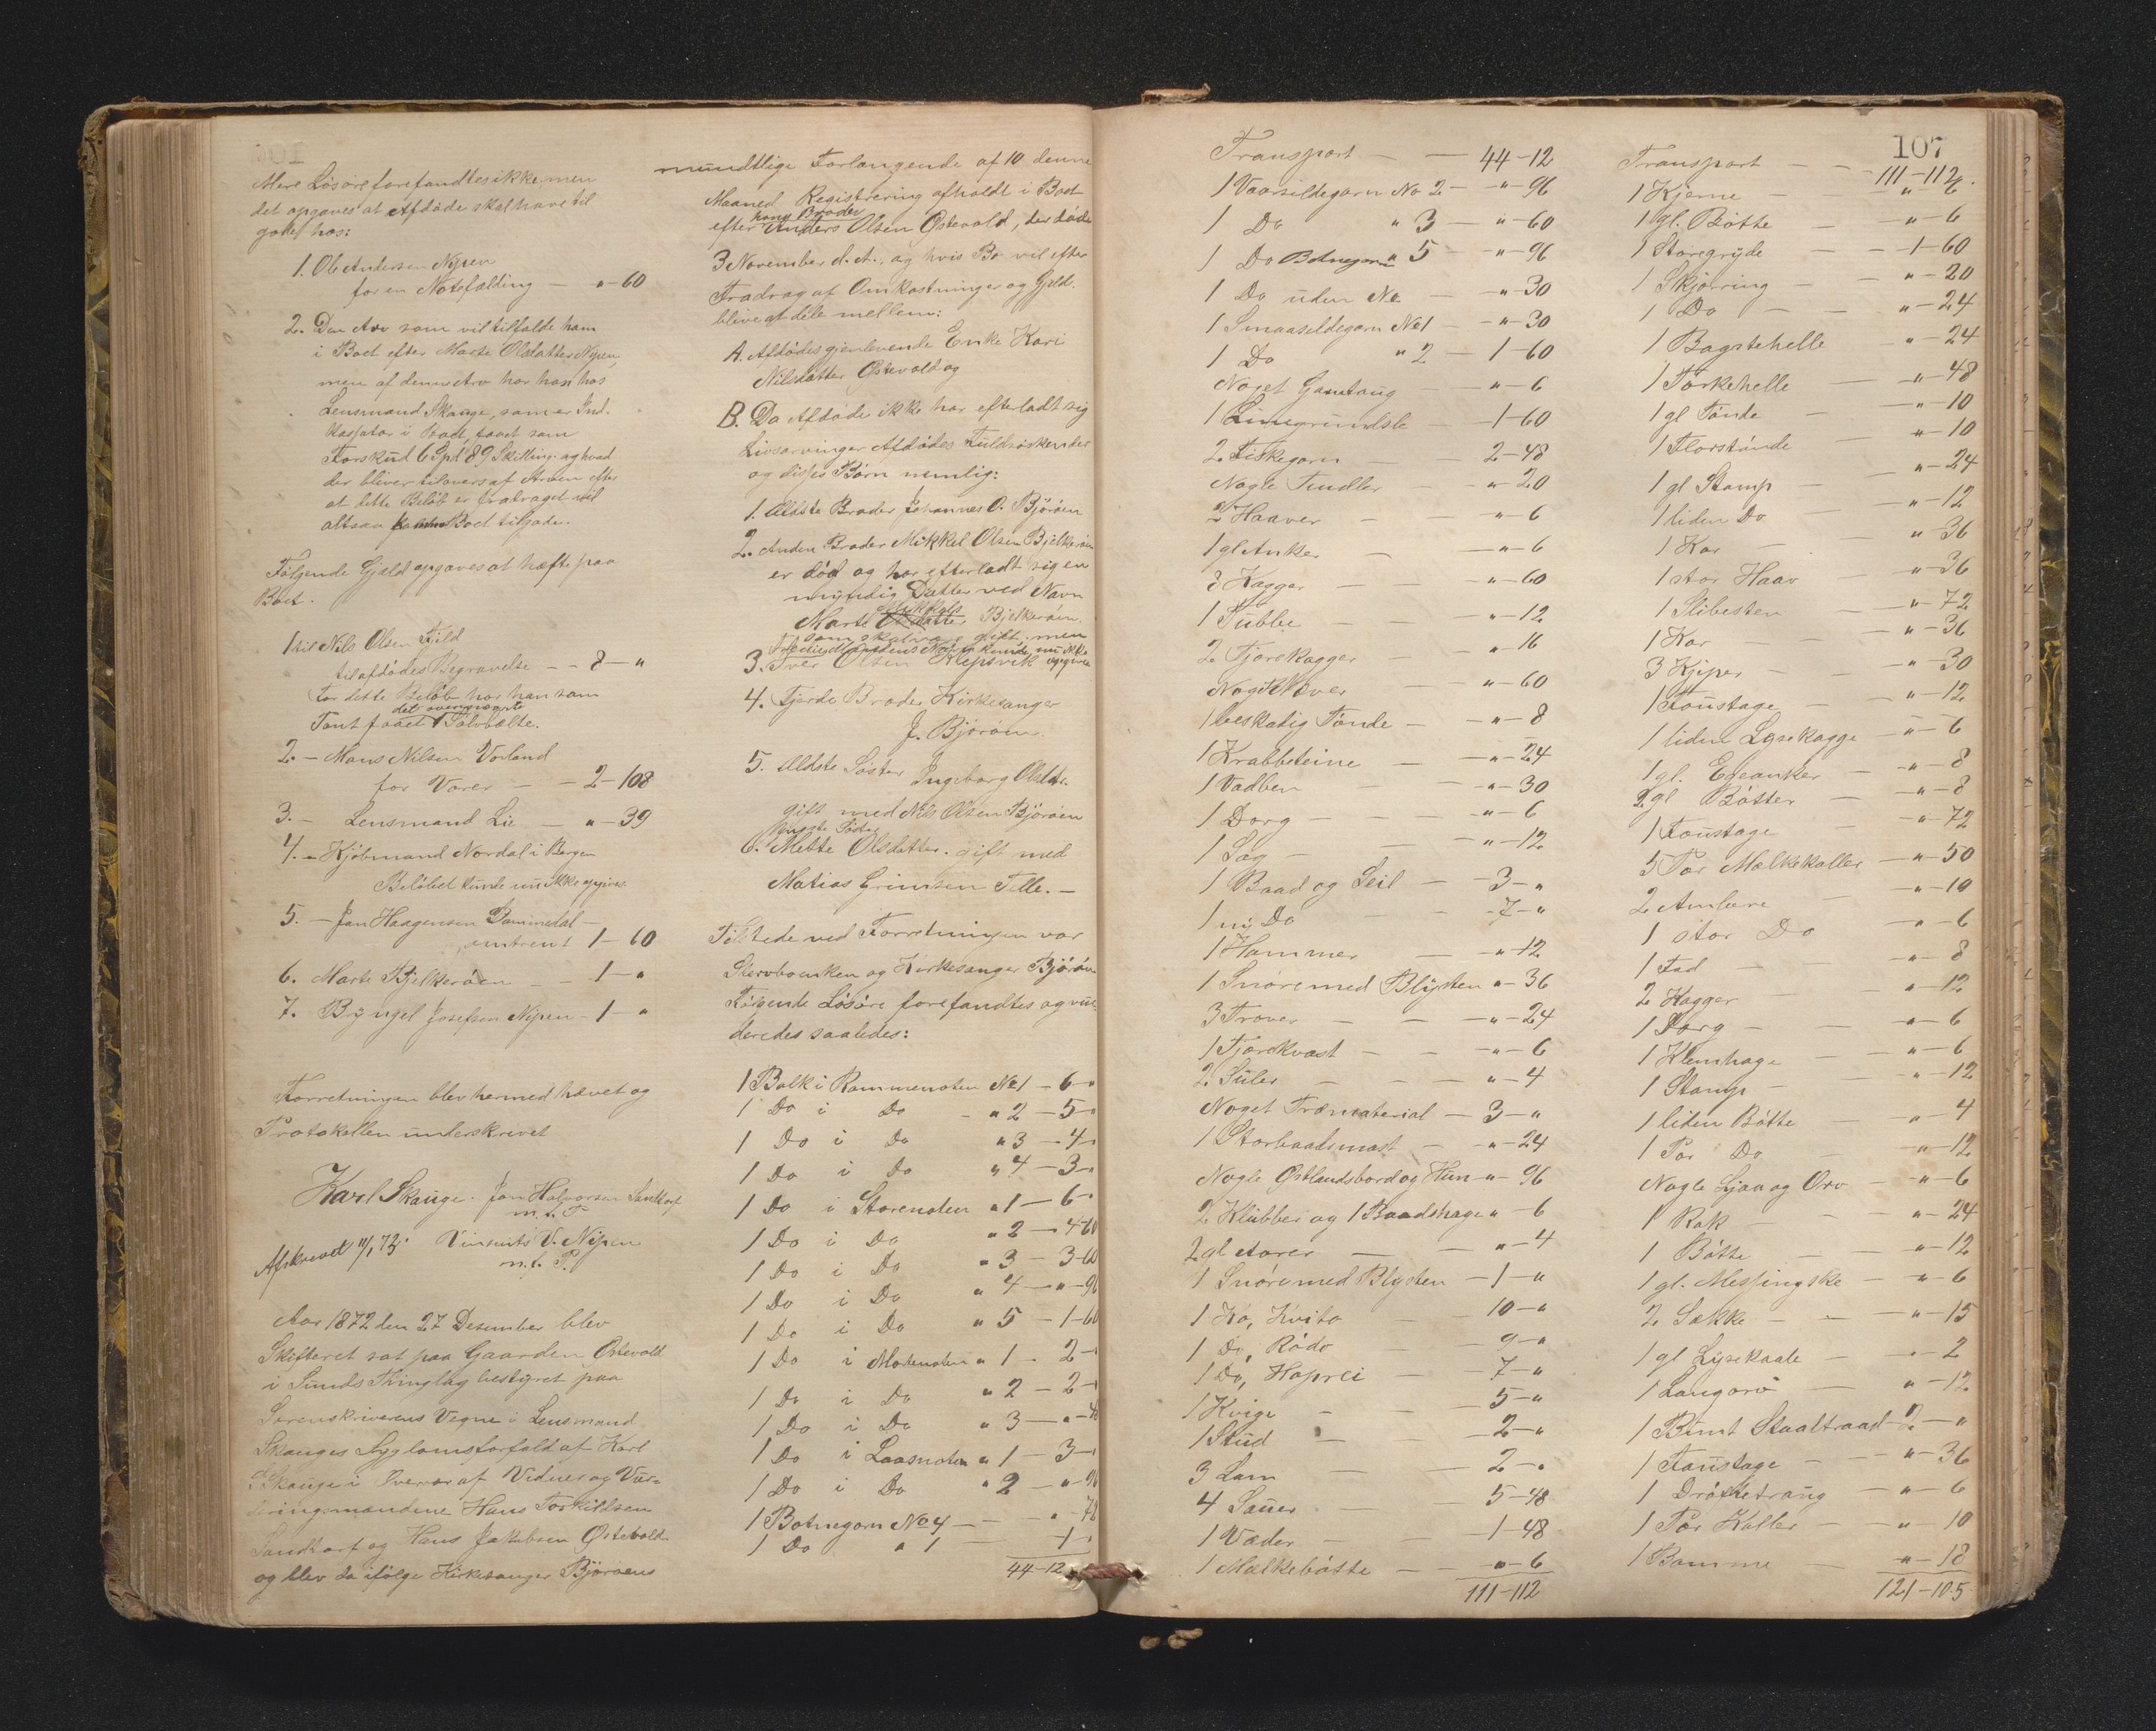 Mere Løsøre forefandtes ikke, men
det opgaves at Afdøde skal have til
gode hos:
1. Ole Andersen Nipen
for en Notefælding — " - 60
2. Den Arv som vil tilfalde ham
i Boet efter Marte Olsdatter Nipen,
men af denne Arv har han hos
Lensmand Skauge, som er Ind-
kassator i Boet, faaet som
Forskud 6 Spd 89 Skilling og hvad
der bliver tilovers af Arven efter
at dette Beløb er fradraget vil
altsaa Boet tilgode.
Følgende Gjæld opgaves at hæfte paa
Boet.
1 til Nils Olsen Fjeld
til afdødes Begravelse — 8 — "
For dette Beløb har han som
det overensagte
Pant faaet 1 Sølvbælte.
2. — Mons Nilsen Vorland
for Varer — 2 - 108
3. — Lensmand Lie — " - 39
4. — Kjøbmand Nordal i Bergen
Beløbet kunde nu ikke opgives.
5. — Jan Haagensen —
omtrent 1 - 60
6. Marte Bjelkerøen — 1 — "
7. Brÿngel Josefson Nipen - 1 — "
Forretningen blev hermed hævet og
Protokollen underskrevet
Karl Skauge. Jan Halvorsen Sandtorf
m. f. P.
Afskrevet 11/1 73. V. Nipen
m. f. P.
Aar 1872 den 27 Desember blev
Skifteret sat paa Gaarden Østevold
i Sunds Thinglag bestyret paa
Sorenskriverens Vegne i Lensmand
Skauges Sygdomsforfald af Karl
Skauge i Overvær af Vidner og Vur-
deringsmændene Hans Torkildsen
Sandtorf og Hans Jakobsen Østevold
og blev da ifølge Kirkesanger Bjørøens
mundtlige Forlangende af 10 denne
Maaned Registrering afholdt i Boet
hans Broder
efter Anders Olsen Østevold, der døde
3 November d. A., og hvis Bo vil efter
Fradrag af Omkostninger og Gjeld.
blive at dele mellem:
A. Afdødes gjenlevende Enke Kari
Nilsdatter Østevold og
B. Da Afdøde ikke har efterladt sig
Livsarvinger Afdødes Fuldsøskender
og disses Børn nemlig:
1. Ældste Broder Johannes O. Bjørøen
2. Anden Broder Mikkel Olsen Bjelkerøen
er død og har efterladt sig en
myndig Datter ved Navn
Mikkels
Marte datter Bjelkerøen.
som skal være gift, men
Mandens Navn kunde nu ikke
3. Iver Olsen Klepsvik opgives
4. Fjerde Broder Kirkesanger
J. Bjørøen.
5. Ældste Søster Ingeborg Olsdtr.
gift med Nils Olsen Bjørøen
yngste Søster
6. Mette Olsdatter. gift med
Matias Grimsen Telle. —
Tilstede ved Forretningen var
Stervboenken og Kirkesanger Bjørøen
Følgende Løsøre forefandtes og vur-
deredes saaledes:
1 Bolk i Rammenoten No 1 - 6 - "
1 Do i Do - " 2 - 5 -
1 Do i Do " 3 - 4 -
1 Do i Do " 4 - 3 -
1 Do i Storenoten " 1 - 6 -
1 Do i Do " 2 - 4 - 60
1 Do i Do " 3 - 3 - 60
1 Do i Do " 4 - " - 96
1 Do i Do " 5 - 1 - 60
1 Do i Motenoten " 1 - 2 -
1 Do i Do " 2 - 2 -
1 Do i Do " 3 - " - 48
1 Do i Laasnoten " 1 - 3 -
1 Do i Do " 2 - " - 96
1 Botnegarn No 4 — " - 72
1 Do " 1 — 1 -
44 - 12
Transport — 44 - 12
1 Vaarsildegarn No 2 — " - 96
1 Do " 3 — " - 60
1 Do Botnegarn " 5 — " - 96
1 Do uden No — " - 30
1 Smaasildegarn No 1 — " - 30
1 Do " 2 — 1 - 60
Noget Gamtaug — " - 6
1 — 1 - 60
2 Fiskegarn — 2 - 48
Nogle — " - 20
2 Haaver — " - 6
1 gl Anker — " - 6
8 Kagger — " - 60
1 Tubbe — " - 12
2 Tjærekagger — " - 16
Noget Næver — " - 60
1 beskadig Tønde — " - 8
1 Krabbeteine — " - 24
1 Vadben — " - 30
1 Dorg — " - 6
1 Sag — " - 12
1 Baad og Seil — 3 - "
1 ny Do — 7 - "
1 Hammer — " - 12
1 Snøre med Blysten " - 36
3 Trøver — " - 24
1 Tjærekvast — " - 6
2 Suler — " - 4
Noget Træmaterial — 3 - "
1 Storbaadsmast — " - 24
Nogle Østlandsbord og Hun - " - 96
2 Klubber og 1 Baadshage " - 6
2 gl Aarer — " - 4
1 Snøre med Blysten — 1 - "
1 Ko, Kvito — 10 - "
1 Do, Rødo — 9 - "
1 Do, Haprei — 7 - "
1 Kvige — 5 - "
1 Stud — 2 - "
3 Lam — 2 - "
4 Sauer — 5 - 48
1 Væder — 1 - 48
1 Malkebøtte — " - 6
111 - 112
107
Transport — 111 - 112.
1 Kjerne — " - 6
1 gl. Bøtte — " - 6
1 Storegryde — 1 - 60
1 Skjørring — " - 20
1 Do — " - 24
1 Bagstehelle — " - 24
1 Tørkehelle — " - 48
1 gl Tønde — " - 10
1 Florstønde — " - 10
1 gl Stamp — " - 24
1 liden Do — " - 12
1 Kar — " - 36
1 stor Haav — " - 36
1 Slibesten — " - 72
1 Kar — " - 36
3 Kjiper — " - 30
1 Foustage — " - 12
1 liden Lysekagge — " - 6
1 gl. Egeanker — " - 8
2 gl Bøtter — " - 8
1 Foustage — " - 72
5 Par Mælkekoller — " - 50
2 Ambere — " - 10
1 stor Do — " - 6
1 Fad — " - 8
2 Kagger — " - 12
1 Dorg — " - 6
1 Klemhage — " - 6
1 Stamp — " - 12
1 liden Bøtte — " - 4
1 Par Do — " - 12
Nogle Ljaa og Orv — " - 6
1 Rok — " - 24
1 Bøtte — " - 12
1 gl. Messingske — " - 6
2 Sække — " - 15
1 gl Lysekaale — " - 2
1 Langorv — " - 12
1 Bunt Staaltraad 2 - "
1 Foustage — " - 36
1 Drøttetraug — " - 6
1 Par Koller — " - 10
1 Bomme — " - 18
121 - 105